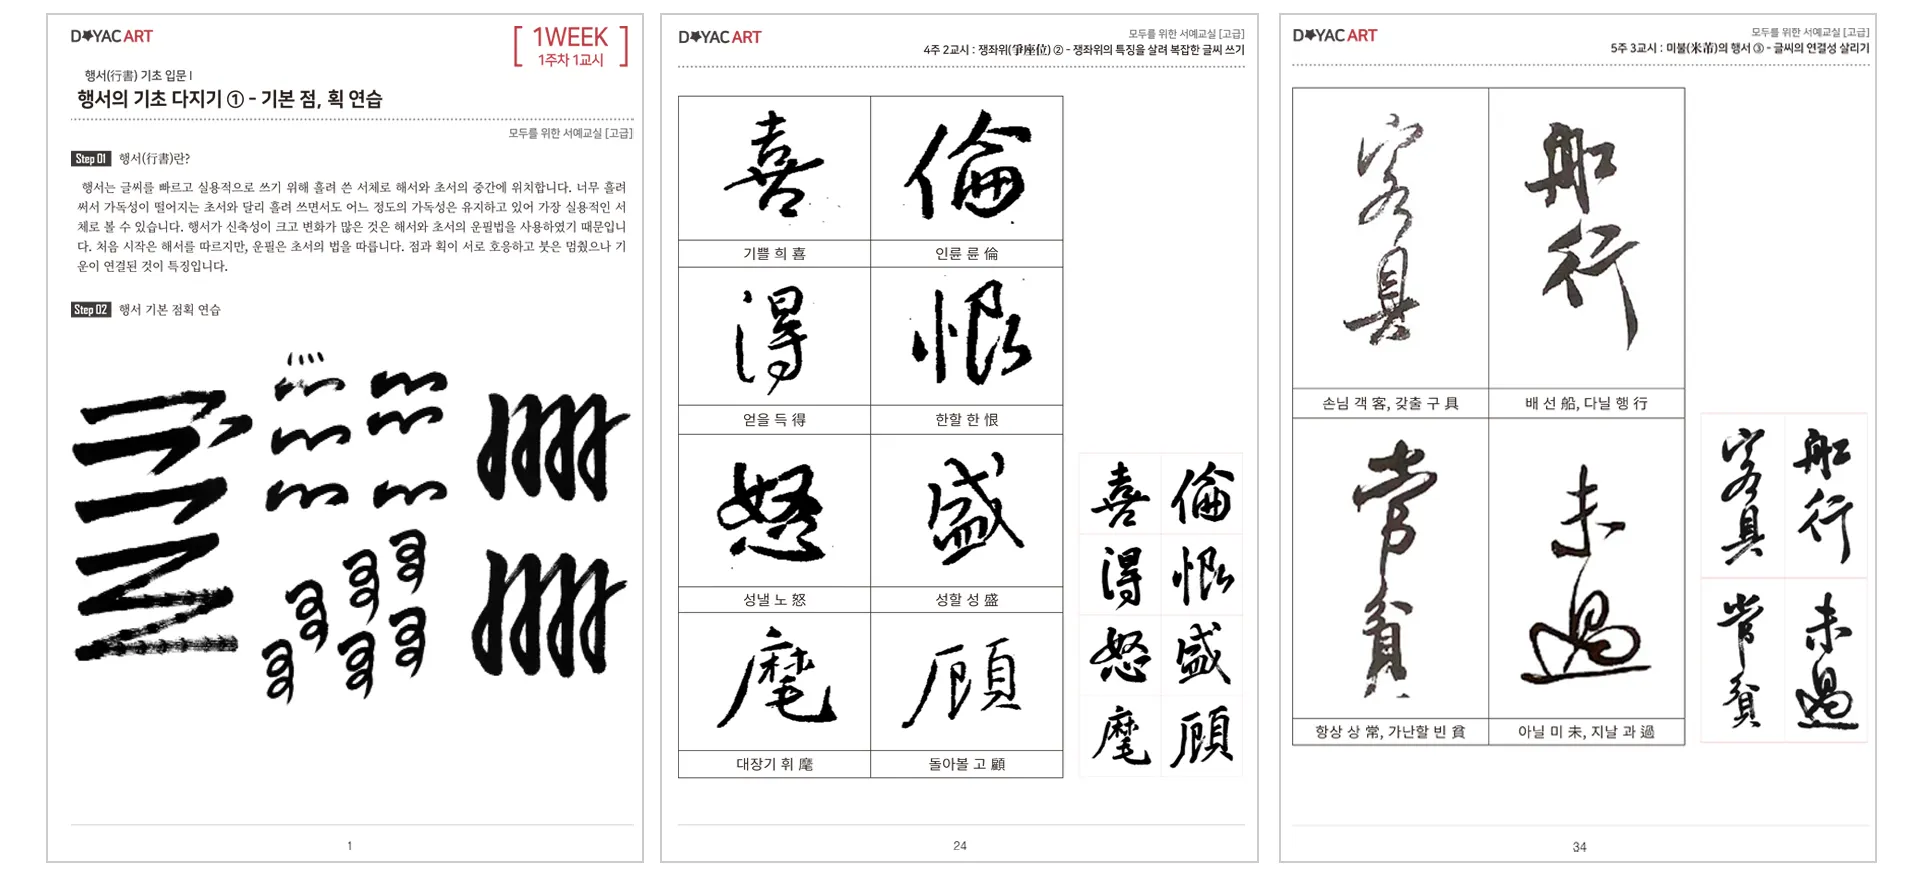 DOYAC ART
1WEEK
1주차 1교시
행서(行書) 기초 입문 I
행서의 기초 다지기 ① - 기본 점, 획 연습
모두를 위한 서예교실 [고급]
Step 01 행서(行書)란?
행서는 글씨를 빠르고 실용적으로 쓰기 위해 흘려 쓴 서체로 해서와 초서의 중간에 위치합니다. 너무 흘려
써서 가독성이 떨어지는 초서와 달리 흘려 쓰면서도 어느 정도의 가독성은 유지하고 있어 가장 실용적인 서
체로 볼 수 있습니다. 행서가 신축성이 크고 변화가 많은 것은 해서와 초서의 운필법을 사용하였기 때문입니
다. 처음 시작은 해서를 따르지만, 운필은 초서의 법을 따릅니다. 점과 획이 서로 호응하고 붓은 멈췄으나 기
운이 연결된 것이 특징입니다.
Step 02 행서 기본 점획 연습
1
DOYAC ART
모두를 위한 서예교실 [고급]
4주 2교시 : 쟁좌위(爭座位) ② - 쟁좌위의 특징을 살려 복잡한 글씨 쓰기
喜 倫
기쁠 희 喜 인륜 륜 倫
得 恨
얻을 득 得 한할 한 恨
怒 盛
성낼 노 怒 성할 성 盛
麾 顧
대장기 휘 麾 돌아볼 고 顧
喜 倫
得 恨
怒 盛
麾 顧
24
DOYAC ART
모두를 위한 서예교실 [고급]
5주 3교시 : 미불(米芾)의 행서 ③ - 글씨의 연결성 살리기
客具 船行
손님 객 客, 갖출 구 具 배 선 船, 다닐 행 行
常貧 未過
항상 상 常, 가난할 빈 貧 아닐 미 未, 지날 과 過
客具 船行
常貧 未過
34